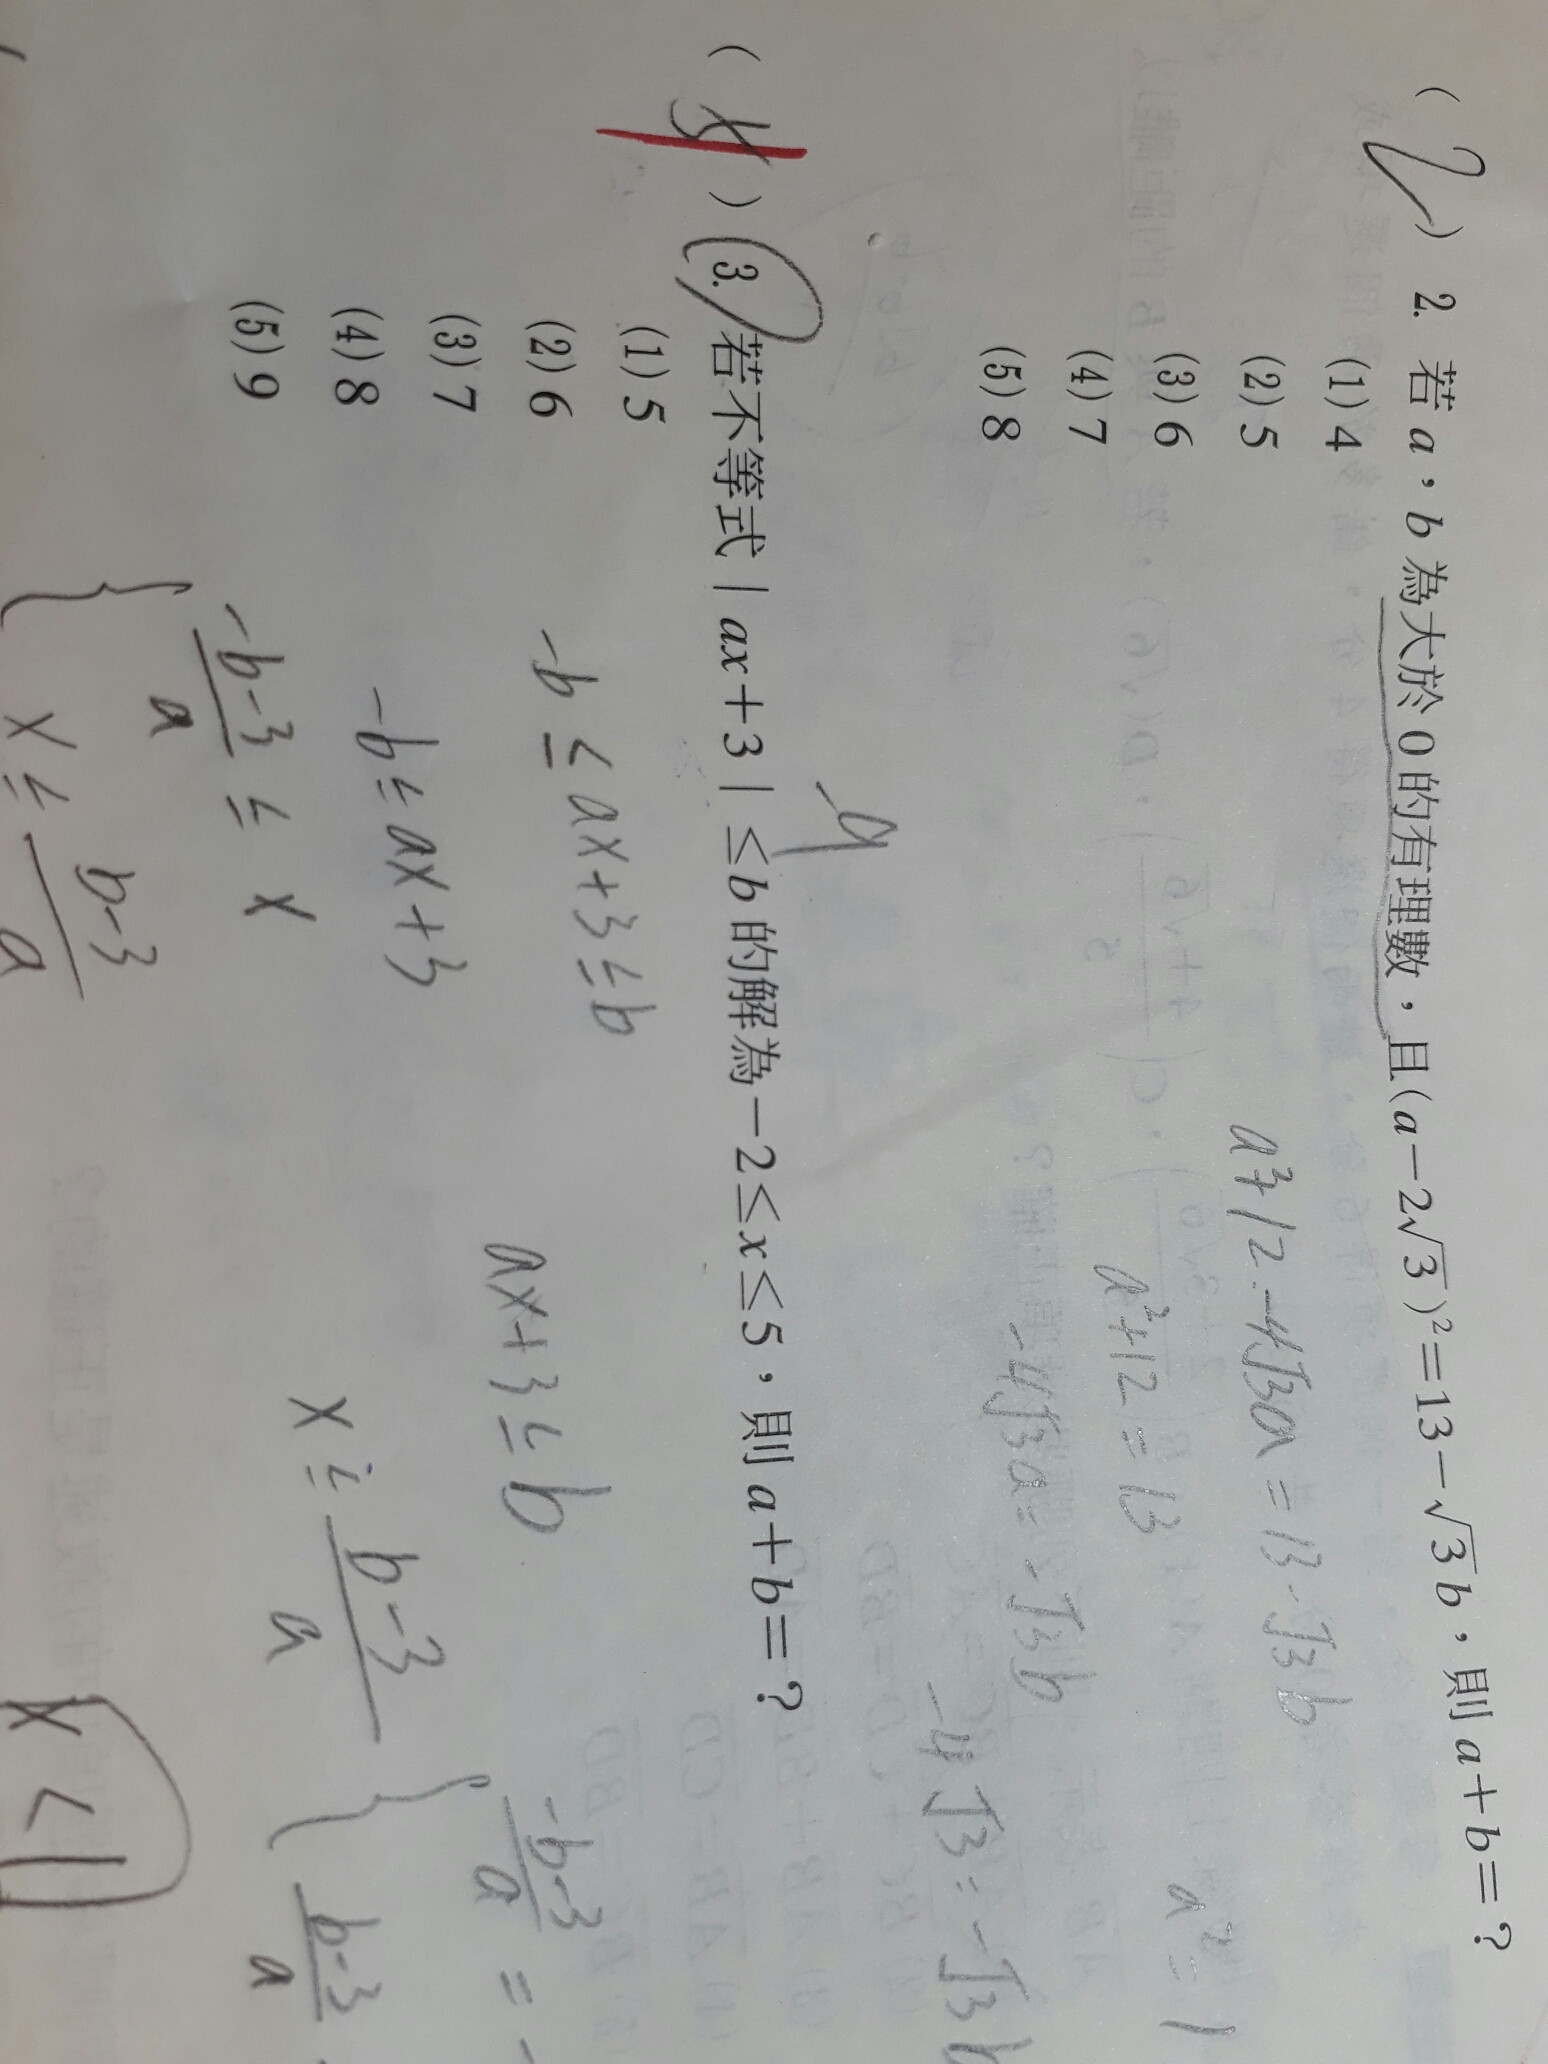 ( 2 ) 2. 若 a，b 為大於 0 的有理數，且(a－2√3)²＝13－√3b，則 a＋b＝？
(1) 4
(2) 5
(3) 6
(4) 7
(5) 8
a²+12-4√3a=13-√3b
a²+12=13
a²=1
-4√3a=-√3b
-4√3=-√3b
( ) 3. 若不等式｜ax＋3｜≤b 的解為－2≤x≤5，則 a＋b＝？
(1) 5
(2) 6
(3) 7
(4) 8
(5) 9
-b≤ax+3≤b
-b≤ax+3
ax+3≤b
-b-3/a ≤ x
x≤ b-3/a
x≤ b-3/a
-b-3/a = -
b-3/a